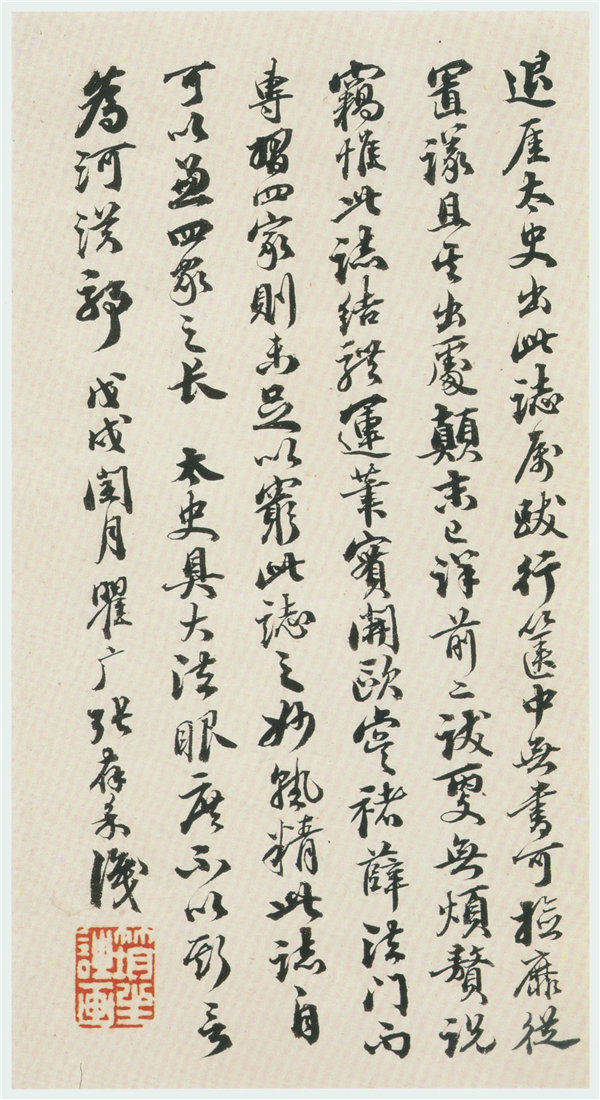 退厓太史出此誌屬跋行篋中無書可撿靡從
置議且其出處顛末已詳前二跋更無煩贅說
竊惟此誌結體運筆實開歐虞褚薛法門而
專習四家則未足以窮此誌之妙孰精此誌自
可以兼四家之长 太史具大法眼庶不以斯言
為河漢 戊戌閏月瞿广張 識